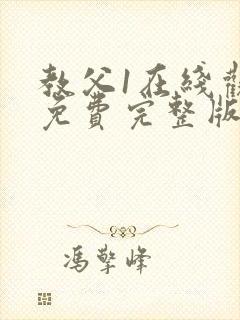 教父1在綫觀
免費完整版
馮擎峰